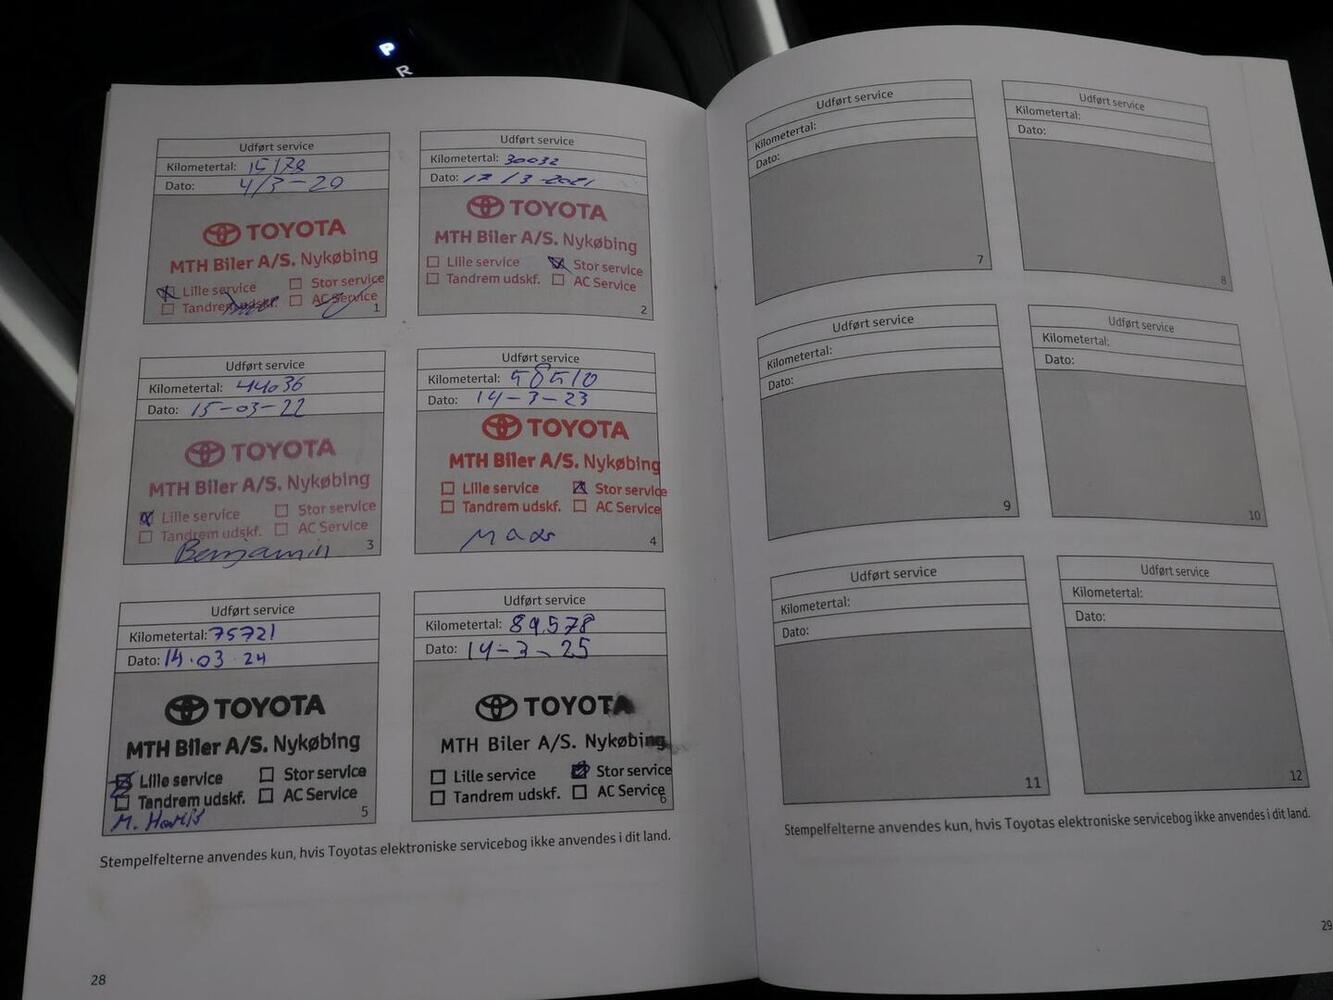 P
R
Udført service
Kilometertal: 15178
Dato: 4/3-20
TOYOTA
MTH Biler A/S. Nykøbing
Lille service Stor service
Tandrem udskf. AC Service
1
Udført service
Kilometertal: 30032
Dato: 12/3-2021
TOYOTA
MTH Biler A/S. Nykøbing
Lille service Stor service
Tandrem udskf. AC Service
2
Udført service
Kilometertal: 44036
Dato: 15-03-22
TOYOTA
MTH Biler A/S. Nykøbing
Lille service Stor service
Tandrem udskf. AC Service
Benjamin 3
Udført service
Kilometertal: 58510
Dato: 14-3-23
TOYOTA
MTH Biler A/S. Nykøbing
Lille service Stor service
Tandrem udskf. AC Service
Mads 4
Udført service
Kilometertal: 75721
Dato: 14.03.24
TOYOTA
MTH Biler A/S. Nykøbing
Lille service Stor service
Tandrem udskf. AC Service
M. 5
Udført service
Kilometertal: 89.578
Dato: 14-3-25
TOYOTA
MTH Biler A/S. Nykøbing
Lille service Stor service
Tandrem udskf. AC Service
6
Stempelfelterne anvendes kun, hvis Toyotas elektroniske servicebog ikke anvendes i dit land.
28
Udført service
Kilometertal:
Dato:
7
Udført service
Kilometertal:
Dato:
8
Udført service
Kilometertal:
Dato:
9
Udført service
Kilometertal:
Dato:
10
Udført service
Kilometertal:
Dato:
11
Udført service
Kilometertal:
Dato:
12
Stempelfelterne anvendes kun, hvis Toyotas elektroniske servicebog ikke anvendes i dit land.
29